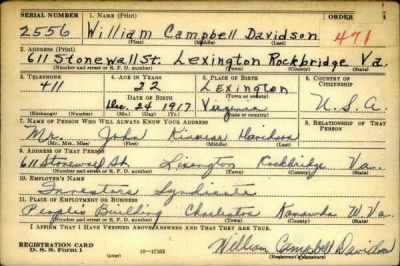 SERIAL NUMBER 1. NAME (Print) ORDER
2556 William Campbell Davidson 471
(First) (Middle) (Last)
2. ADDRESS (Print)
611 Stonewall St. Lexington Rockbridge Va.
(Number and street or R. F. D. number) (Town) (County) (State)
3. TELEPHONE 4. AGE IN YEARS 5. PLACE OF BIRTH 6. COUNTRY OF CITIZENSHIP
411 22 Lexington
DATE OF BIRTH (Town or county)
Dec. 24 1917 Virginia U.S.A.
(Exchange) (Number) (Mo.) (Day) (Yr.) (State or country)
7. NAME OF PERSON WHO WILL ALWAYS KNOW YOUR ADDRESS 8. RELATIONSHIP OF THAT PERSON
Mr. John Kinnear Davidson
(Mr., Mrs., Miss) (First) (Middle) (Last)
9. ADDRESS OF THAT PERSON
611 Stonewall St. Lexington Rockbridge Va.
(Number and street or R. F. D. number) (Town) (County) (State)
10. EMPLOYER'S NAME
Investors Syndicate
11. PLACE OF EMPLOYMENT OR BUSINESS
Peoples Building Charleston Kanawha W. Va.
(Number and street or R. F. D. number) (Town) (County) (State)
I AFFIRM THAT I HAVE VERIFIED ABOVE ANSWERS AND THAT THEY ARE TRUE.
REGISTRATION CARD
D. S. S. Form 1 William Campbell Davidson
(Registrant's signature)